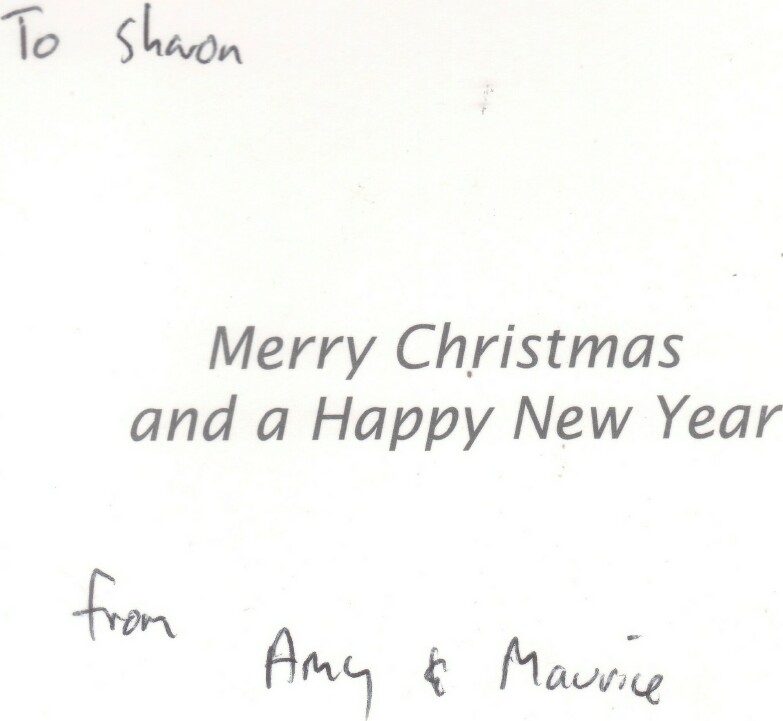 To Sharon
Merry Christmas
and a Happy New Year
from
Amy & Maurice